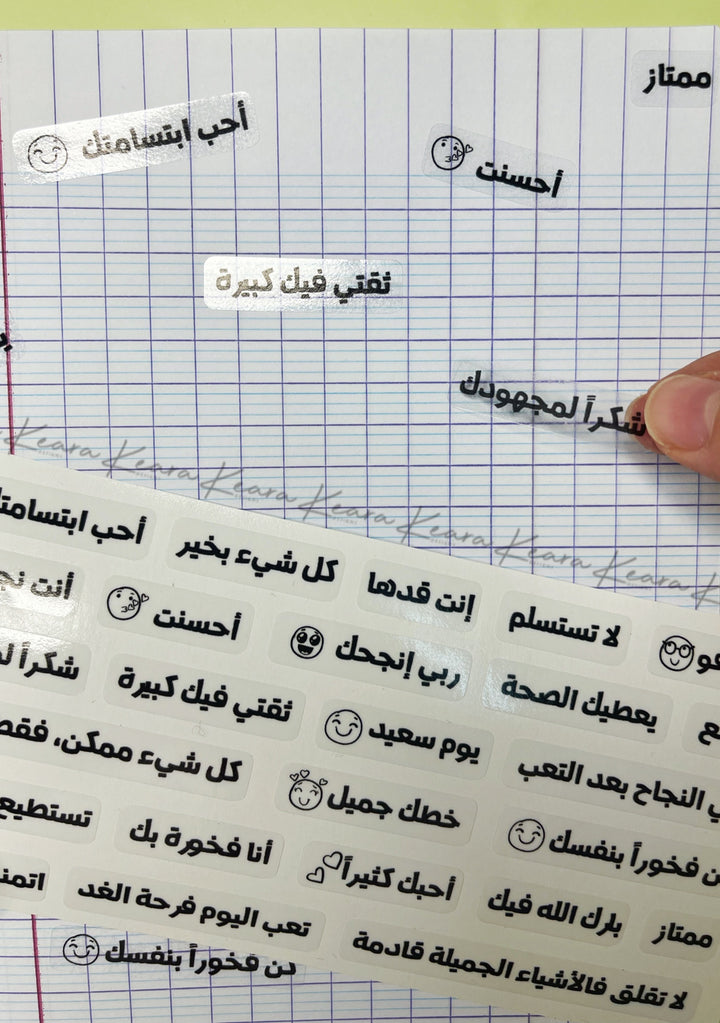 ممتاز
أحب ابتسامتك
أحسنت
ثقتي فيك كبيرة
شكراً لمجهودك
Keara Keara Keara Keara Keara Keara Keara
أحب ابتسامتك
كل شيء بخير
إنت قدها
لا تستسلم
أنت
أحسنت
ربي إنجحك
يعطيك الصحة
شكراً
ثقتي فيك كبيرة
يوم سعيد
النجاح بعد التعب
كل شيء ممكن، فقط
خطك جميل
فخوراً بنفسك
تستطيع
أنا فخورة بك
أحبك كثيراً
بارك الله فيك
ممتاز
تعب اليوم فرحة الغد
لا تقلق فالأشياء الجميلة قادمة
فخوراً بنفسك